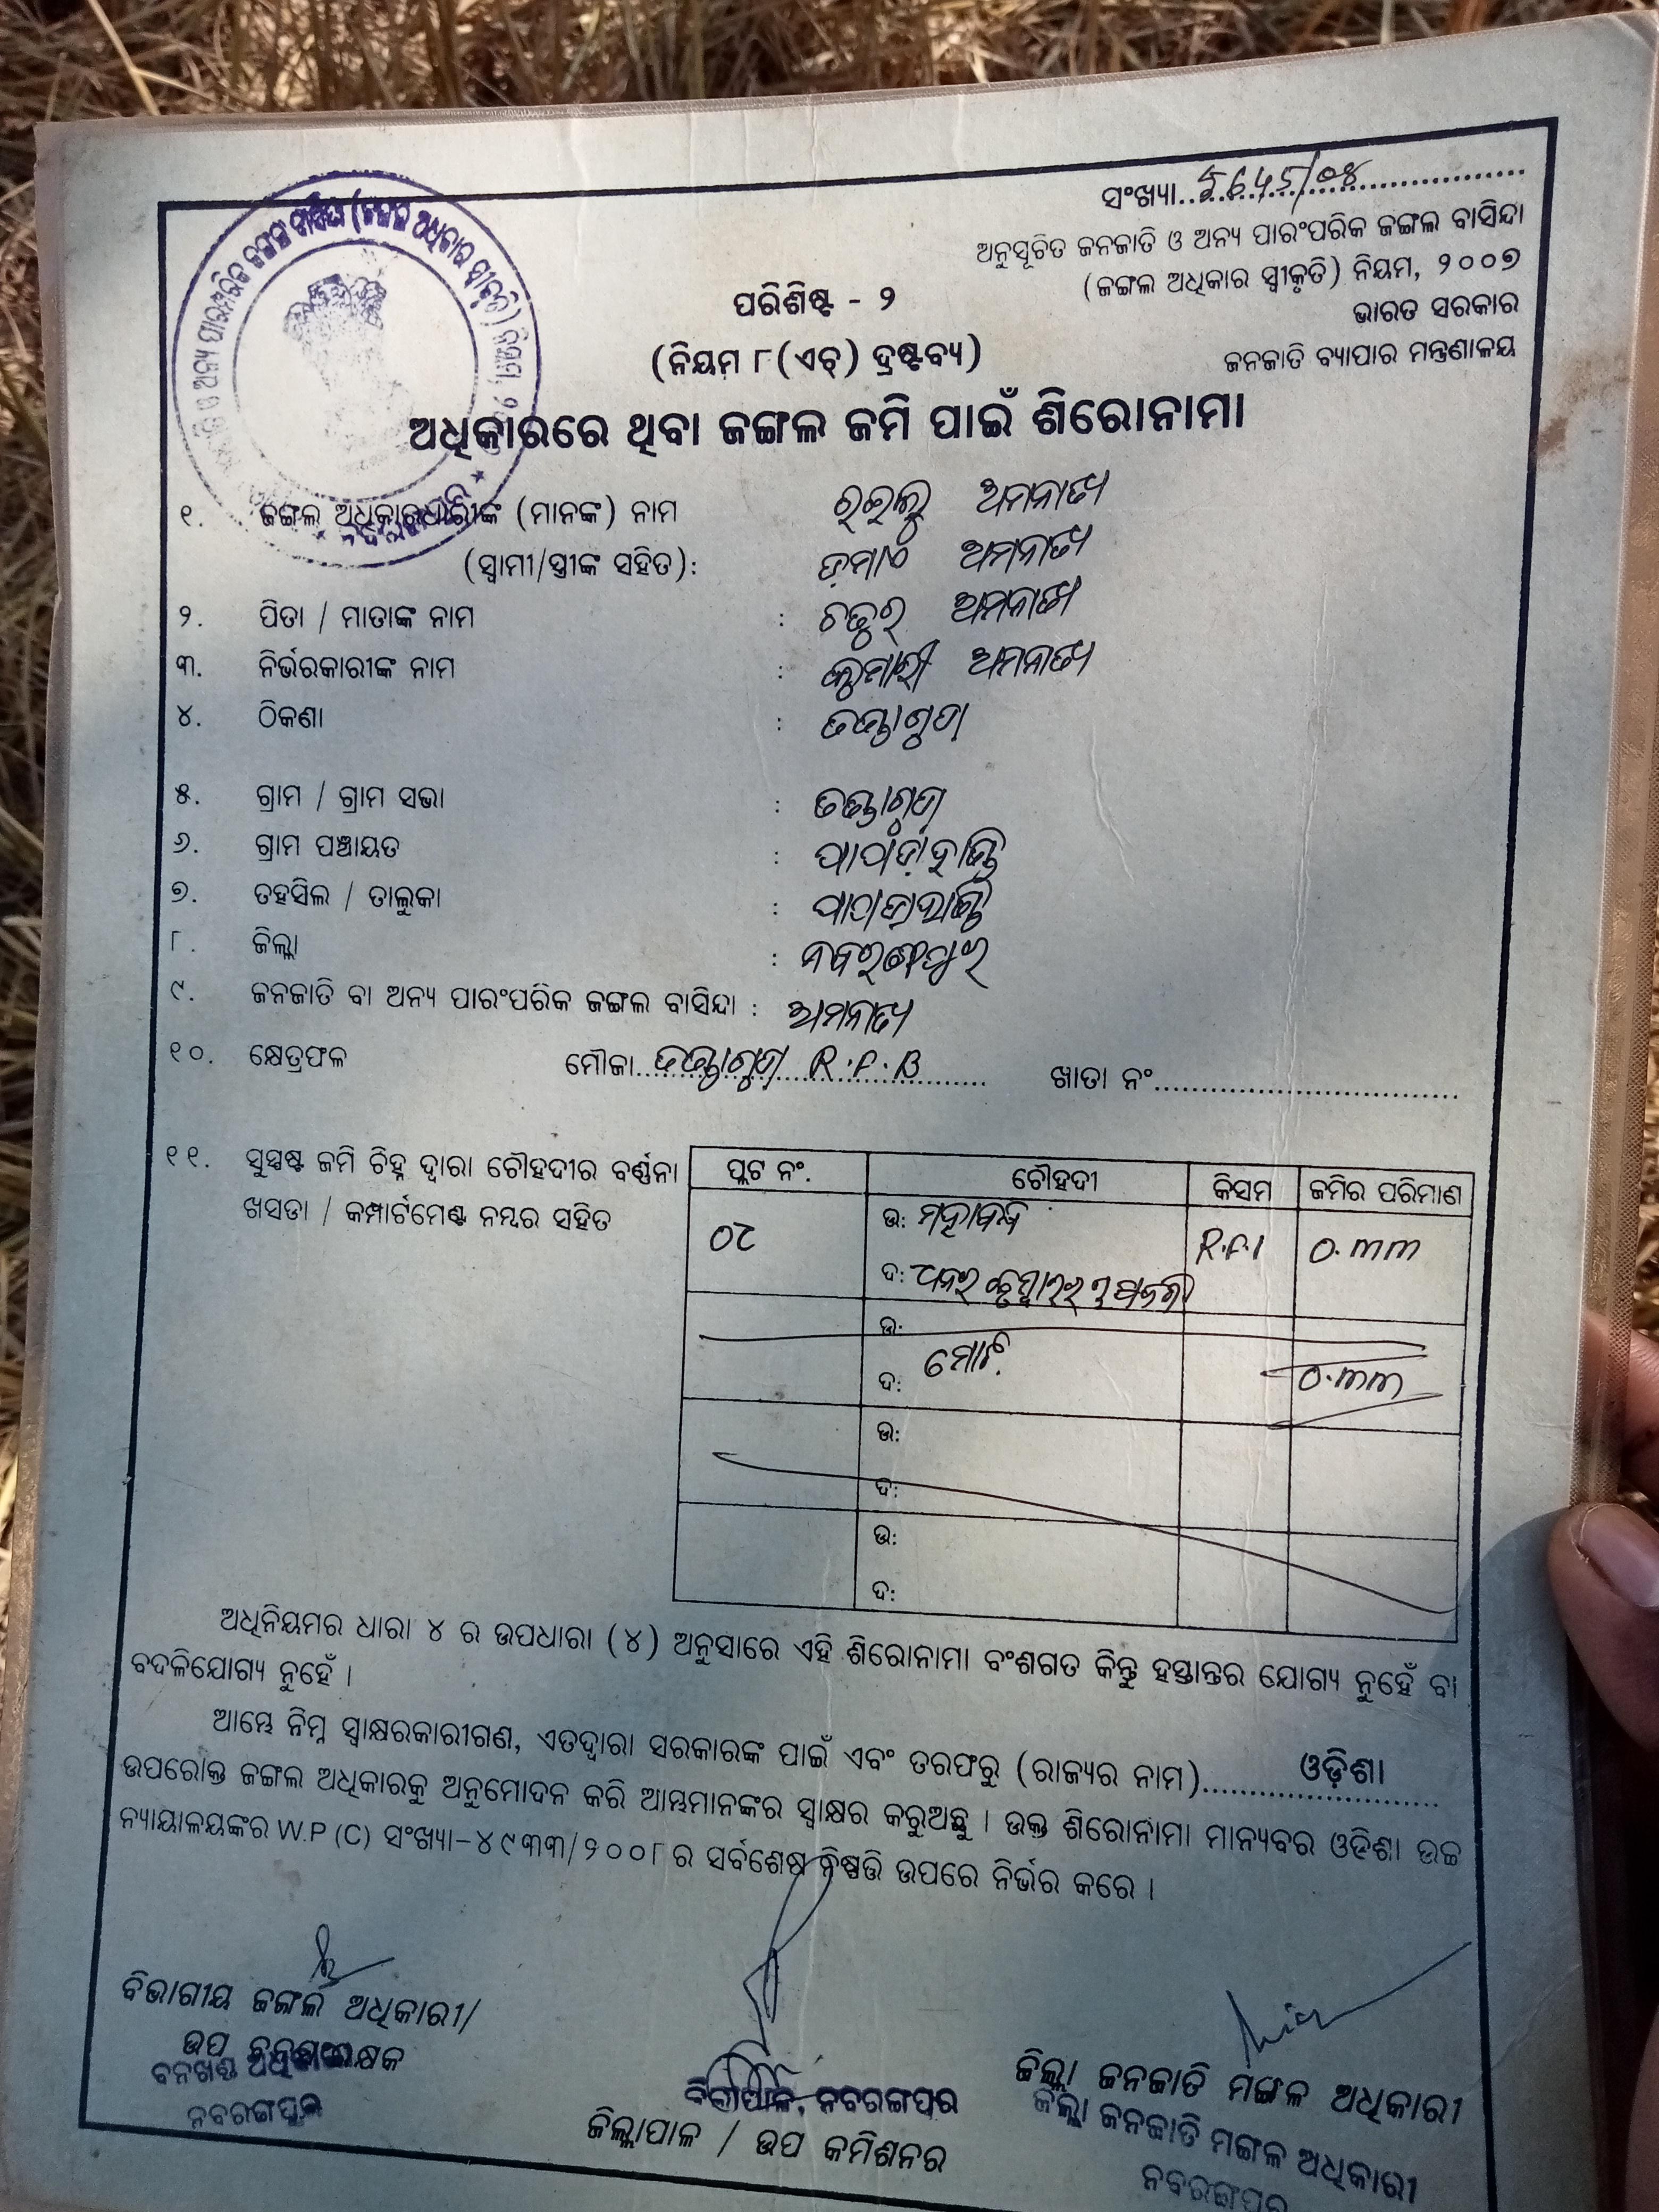 ସଂଖ୍ୟା
ଅନୁସୂଚିତ ଜନଜାତି ଓ ଅନ୍ୟ ପାରଂପରିକ ଜଙ୍ଗଲ ବାସିନ୍ଦା
(ଜଙ୍ଗଲ ଅଧିକାର ସ୍ୱୀକୃତି) ନିୟମ, ୨୦୦୭
ଭାରତ ସରକାର
ଜନଜାତି ବ୍ୟାପାର ମନ୍ତ୍ରଣାଳୟ
ପରିଶିଷ୍ଟ - ୨
(ନିୟମ ୮(ଏଚ୍) ଦ୍ରଷ୍ଟବ୍ୟ)
ଅଧିକାରରେ ଥିବା ଜଙ୍ଗଲ ଜମି ପାଇଁ ଶିରୋନାମା
୧. ଜଙ୍ଗଲ ଅଧିକାରଧାରୀଙ୍କ (ମାନଙ୍କ) ନାମ ଅମନାତ୍ୟ
(ସ୍ୱାମୀ/ସ୍ତ୍ରୀଙ୍କ ସହିତ): ଅମନାତ୍ୟ
୨. ପିତା / ମାତାଙ୍କ ନାମ : ଚତୁର ଅମନାତ୍ୟ
୩. ନିର୍ଭରକାରୀଙ୍କ ନାମ : କୁମାରୀ ଅମନାତ୍ୟ
୪. ଠିକଣା :
୫. ଗ୍ରାମ / ଗ୍ରାମ ସଭା :
୬. ଗ୍ରାମ ପଞ୍ଚାୟତ : ପାପଡ଼ାହାଣ୍ଡି
୭. ତହସିଲ / ତାଲୁକା : ପାପଡ଼ାହାଣ୍ଡି
୮. ଜିଲ୍ଲା : ନବରଙ୍ଗପୁର
୯. ଜନଜାତି ବା ଅନ୍ୟ ପାରଂପରିକ ଜଙ୍ଗଲ ବାସିନ୍ଦା : ଅମନାତ୍ୟ
୧୦. କ୍ଷେତ୍ରଫଳ ମୌଜା R.F.B ଖାତା ନଂ
୧୧. ସୁସ୍ପଷ୍ଟ ଜମି ଚିହ୍ନ ଦ୍ୱାରା ଚୌହଦୀର ବର୍ଣ୍ଣନା
ଖସଡା / କମ୍ପାର୍ଟମେଣ୍ଟ ନମ୍ବର ସହିତ
ପ୍ଲଟ ନଂ. ଚୌହଦୀ କିସମ ଜମିର ପରିମାଣ
୦୯ ଉ: R.F.1 ୦.୩୩
ଦ:
ଉ:
ଦ: ମୋଟ ୦.୩୩
ଉ:
ଦ:
ଉ:
ଦ:
ଅଧିନିୟମର ଧାରା ୪ ର ଉପଧାରା (୪) ଅନୁସାରେ ଏହି ଶିରୋନାମା ବଂଶଗତ କିନ୍ତୁ ହସ୍ତାନ୍ତର ଯୋଗ୍ୟ ନୁହେଁ ବା
ବଦଳିଯୋଗ୍ୟ ନୁହେଁ ।
ଆମ୍ଭେ ନିମ୍ନ ସ୍ୱାକ୍ଷରକାରୀଗଣ, ଏତଦ୍ୱାରା ସରକାରଙ୍କ ପାଇଁ ଏବଂ ତରଫରୁ (ରାଜ୍ୟର ନାମ) ଓଡ଼ିଶା
ଉପରୋକ୍ତ ଜଙ୍ଗଲ ଅଧିକାରକୁ ଅନୁମୋଦନ କରି ଆମ୍ଭମାନଙ୍କର ସ୍ୱାକ୍ଷର କରୁଅଛୁ । ଉକ୍ତ ଶିରୋର୍ନାମା ମାନ୍ୟବର ଓଡିଶା ଉଚ୍ଚ
ନ୍ୟାୟାଳୟଙ୍କର W.P(C) ସଂଖ୍ୟା-୪୯୩୩/୨୦୦୮ ର ସର୍ବଶେଷ ନିଷ୍ପତ୍ତି ଉପରେ ନିର୍ଭର କରେ ।
ବିଭାଗୀୟ ଜଙ୍ଗଲ ଅଧିକାରୀ/
ଉପ ବନସଂରକ୍ଷକ
ବନଖଣ୍ଡ ଅଧିକାରୀ
ନବରଙ୍ଗପୁର
ଜିଲ୍ଲାପାଳ, ନବରଙ୍ଗପୁର
ଜିଲ୍ଲାପାଳ / ଉପ କମିଶନର
ଜିଲ୍ଲା ଜନଜାତି ମଙ୍ଗଳ ଅଧିକାରୀ
ଜିଲ୍ଲା ଜନଜାତି ମଙ୍ଗଳ ଅଧିକାରୀ
ନବରଙ୍ଗପୁର